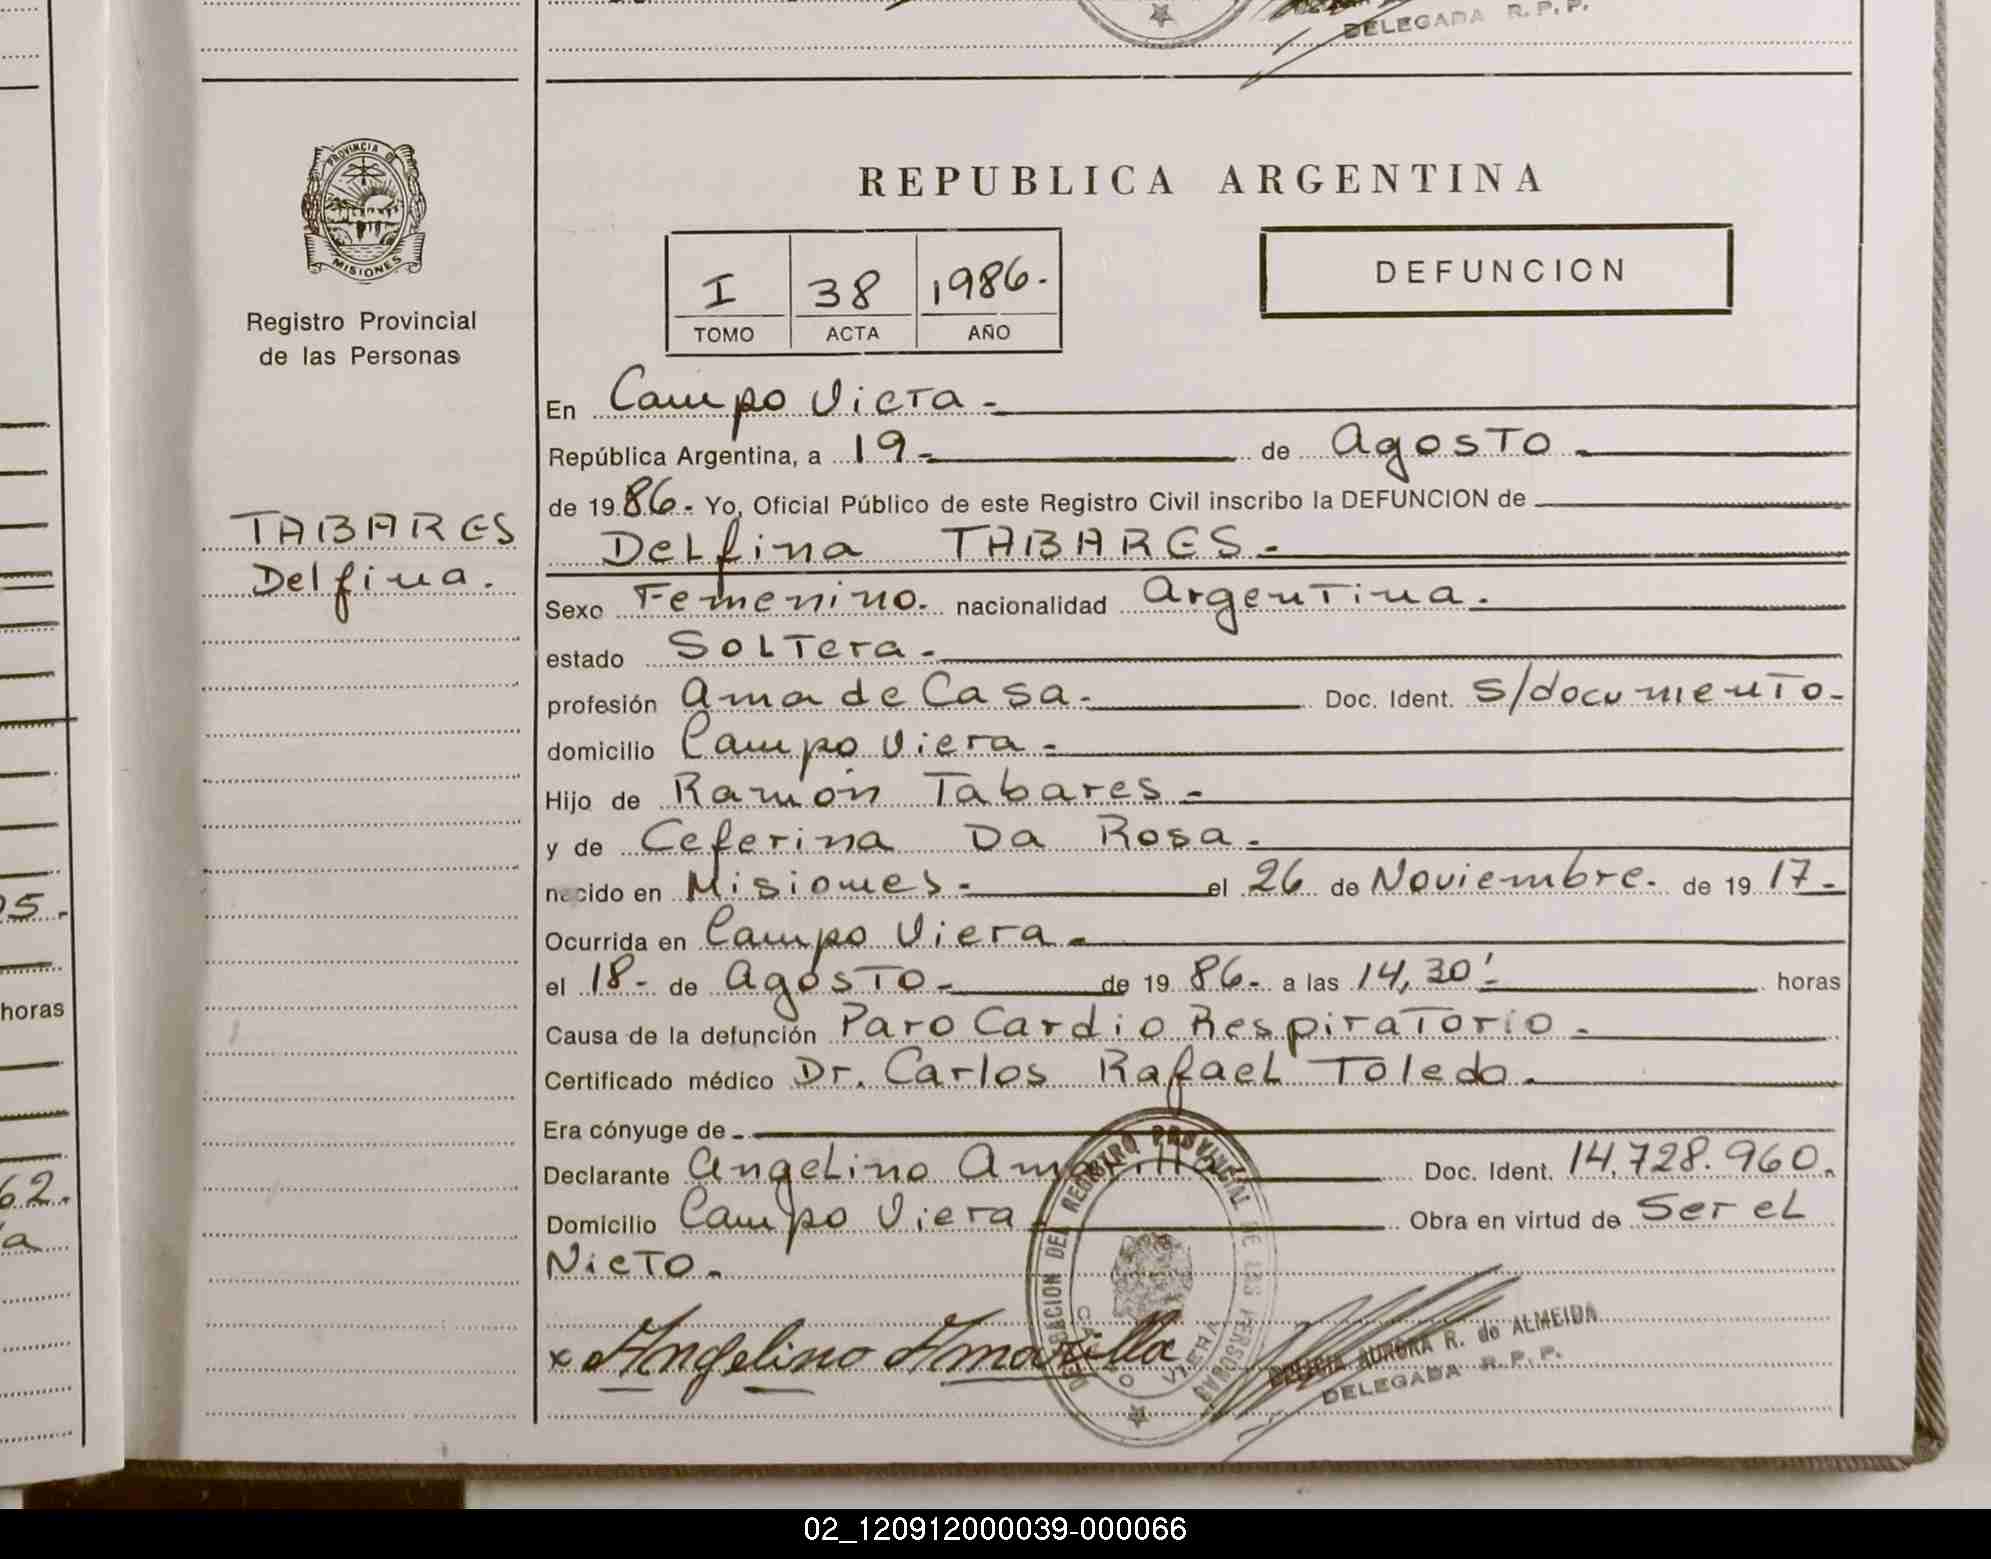 DELEGADA R. P. P.
PROVINCIA DE
MISIONES
Registro Provincial
de las Personas
REPUBLICA ARGENTINA
I 38 1986.
TOMO ACTA AÑO
DEFUNCION
TABARES
Delfina.
En Campo Viera -
República Argentina, a 19 - de Agosto -
de 19 86 - Yo, Oficial Público de este Registro Civil inscribo la DEFUNCION de
Delfina TABARES -
Sexo Femenino. nacionalidad Argentina.
estado Soltera -
profesión Ama de Casa - Doc. Ident. s/documento -
domicilio Campo Viera -
Hijo de Ramón Tabares -
y de Ceferina Da Rosa -
nacido en Misiones - el 26 de Noviembre. de 19 17 -
Ocurrida en Campo Viera -
el 18 - de Agosto - de 19 86 - a las 14,30' horas
Causa de la defunción Paro Cardio Respiratorio -
Certificado médico Dr. Carlos Rafael Toledo -
Era cónyuge de -
Declarante Angelino Amarilla Doc. Ident. 14.728.960.
Domicilio Campo Viera - Obra en virtud de Ser el
Nieto -
x Angelino Amarilla
DELEGACION DEL REGISTRO PROVINCIAL DE LAS PERSONAS
CAMPO VIERA
AURORA R. de ALMEIDA
DELEGADA R. P. P.
05.
horas
62.
a
02_120912000039-000066